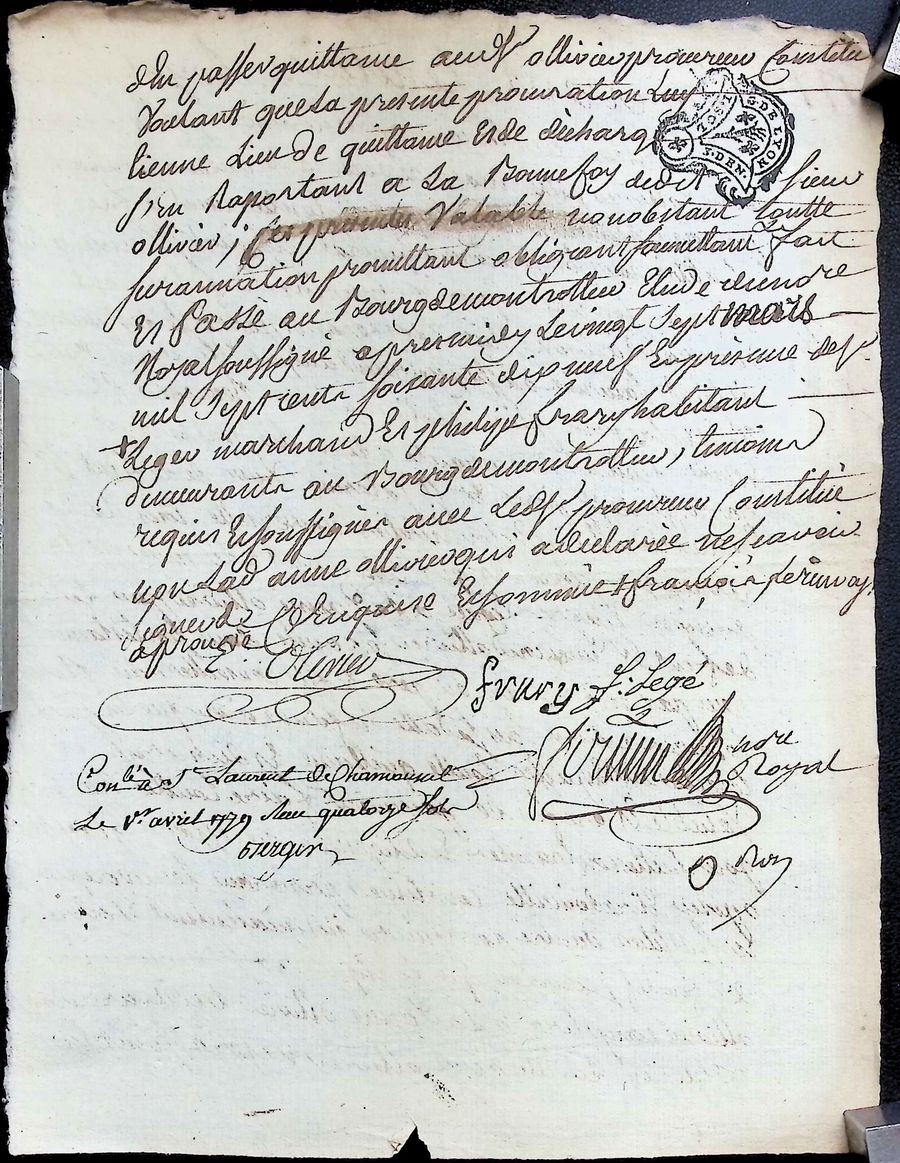 d'en passer quittance au Sr ollivier procureur Constitué
Voulant que la presente procuration luy
tienne Lieu de quittance Et de décharg
s'en Raportant a La Bonne foy dudit Sieur
ollivier ; Ces presentes Valable nonobstant touttes
surannation promettant obligeant soumettant fait
Et Passé au Bourg de montrottier Etude du nore
Royal soussigné apres midy Le vingt Sept mars
mil Sept cents soixante dix neuf En presence de Sr
+ Leger marchand Et philipe frary habitant
demeurants au Bourg de montrottier, temoins
requis Et soussignés avec Ledt Sr procureur Constitué
non Lad anne ollivier qui a declarée ne sçavoir
signer de Enquise Et sommée + françois
aprouvé
Olivier
frury f. Legé
nore
Royal
Conlé à St Laurent de Chamousset
Le 1er avril 1779 Reçu quatorze sols
G. DE LYON
G. DEN.